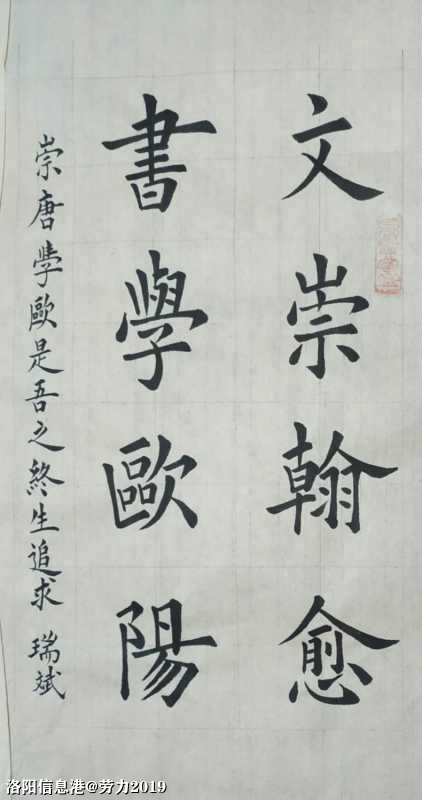 文崇翰愈
書學歐陽
崇唐學歐是吾之終生追求 瑞斌
洛阳信息港@劳力2019